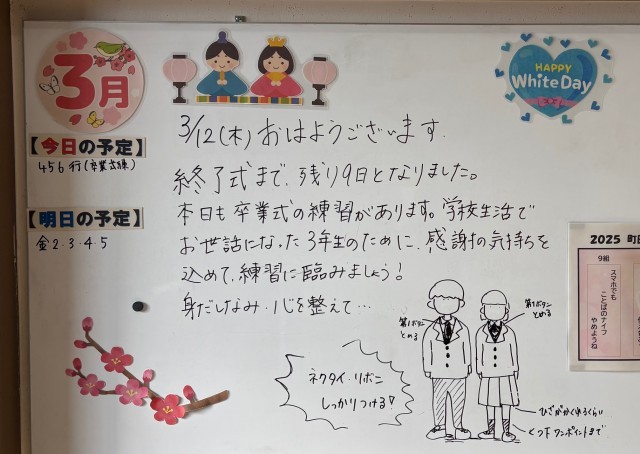 3月
HAPPY
White Day
【今日の予定】
456行(卒業式練)
【明日の予定】
金2・3・4・5
3/12(木)おはようございます.
終了式まで、残り9日となりました。
本日も卒業式の練習があります。学校生活で
お世話になった3年生のために、感謝の気持ちを
込めて、練習に臨みましょう!
身だしなみ・心を整えて…
ネクタイ・リボン
しっかりつける!
第1ボタン
とめる
第1ボタン
とめる
ひざがかくれるくらい
くつ下ワンポイントまで
2025 町田
9組
スマホでも
ことばのナイフ
やめようね